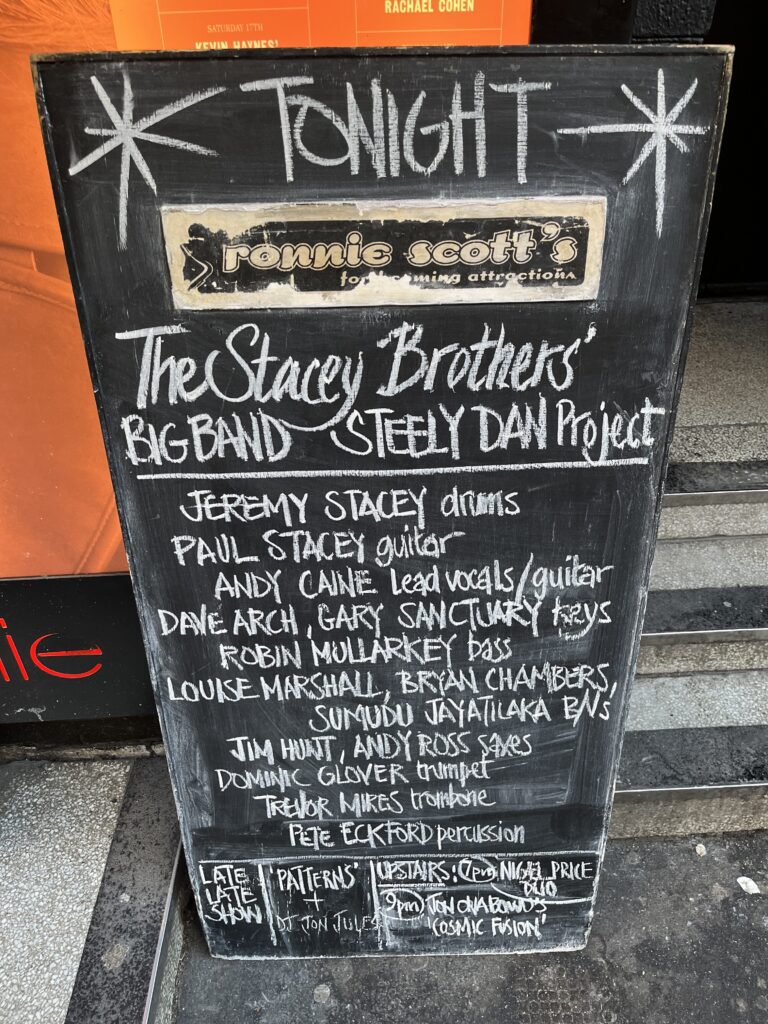 RACHAEL COHEN
SATURDAY 17TH
KEVIN HAYNES'
TONIGHT
ronnie scott's
forthcoming attractions
The Stacey Brothers'
BIG BAND STEELY DAN Project
JEREMY STACEY drums
PAUL STACEY guitar
ANDY CAINE Lead vocals/guitar
DAVE ARCH, GARY SANCTUARY keys
ROBIN MULLARKEY bass
LOUISE MARSHALL, BRYAN CHAMBERS,
SUMUDU JAYATILAKA B/Vs
JIM HUNT, ANDY ROSS saxes
DOMINIC GLOVER trumpet
TREVOR MIRES trombone
PETE ECKFORD percussion
LATE
LATE
SHOW
'PATTERNS'
+
DJ JON
UPSTAIRS: 7pm) NIGEL PRICE
DUO
9pm) JON
'COSMIC FUSION'
ie